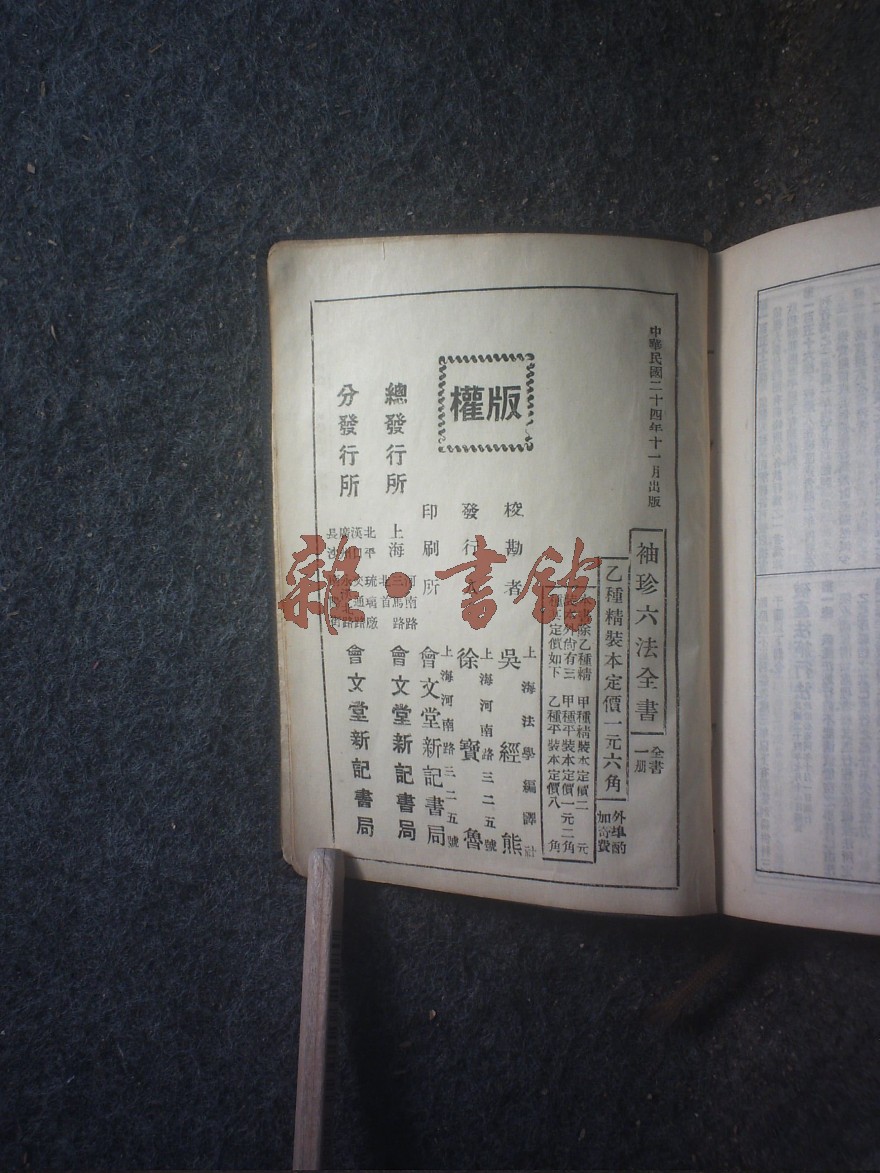 中華民國二十四年十一月出版
袖珍六法全書
全書
一册
乙種精裝本定價一元六角
外埠酌
加寄費
除乙種精
外尚有三
定價如下
甲種精裝本定價二元
甲種平裝本定價一元二角
乙種平裝本定價八角
版權
校勘者
上海法學編譯社
吳經熊
發行人
上海河南路三二五號
徐寶魯
印刷所
上海河南路三二五號
會文堂新記書局
總發行所
上海
河南路
三馬路
北首
會文堂新記書局
分發行所
北平
琉璃廠
漢口
交通路
廣州
會文堂新記書局
雜·書館